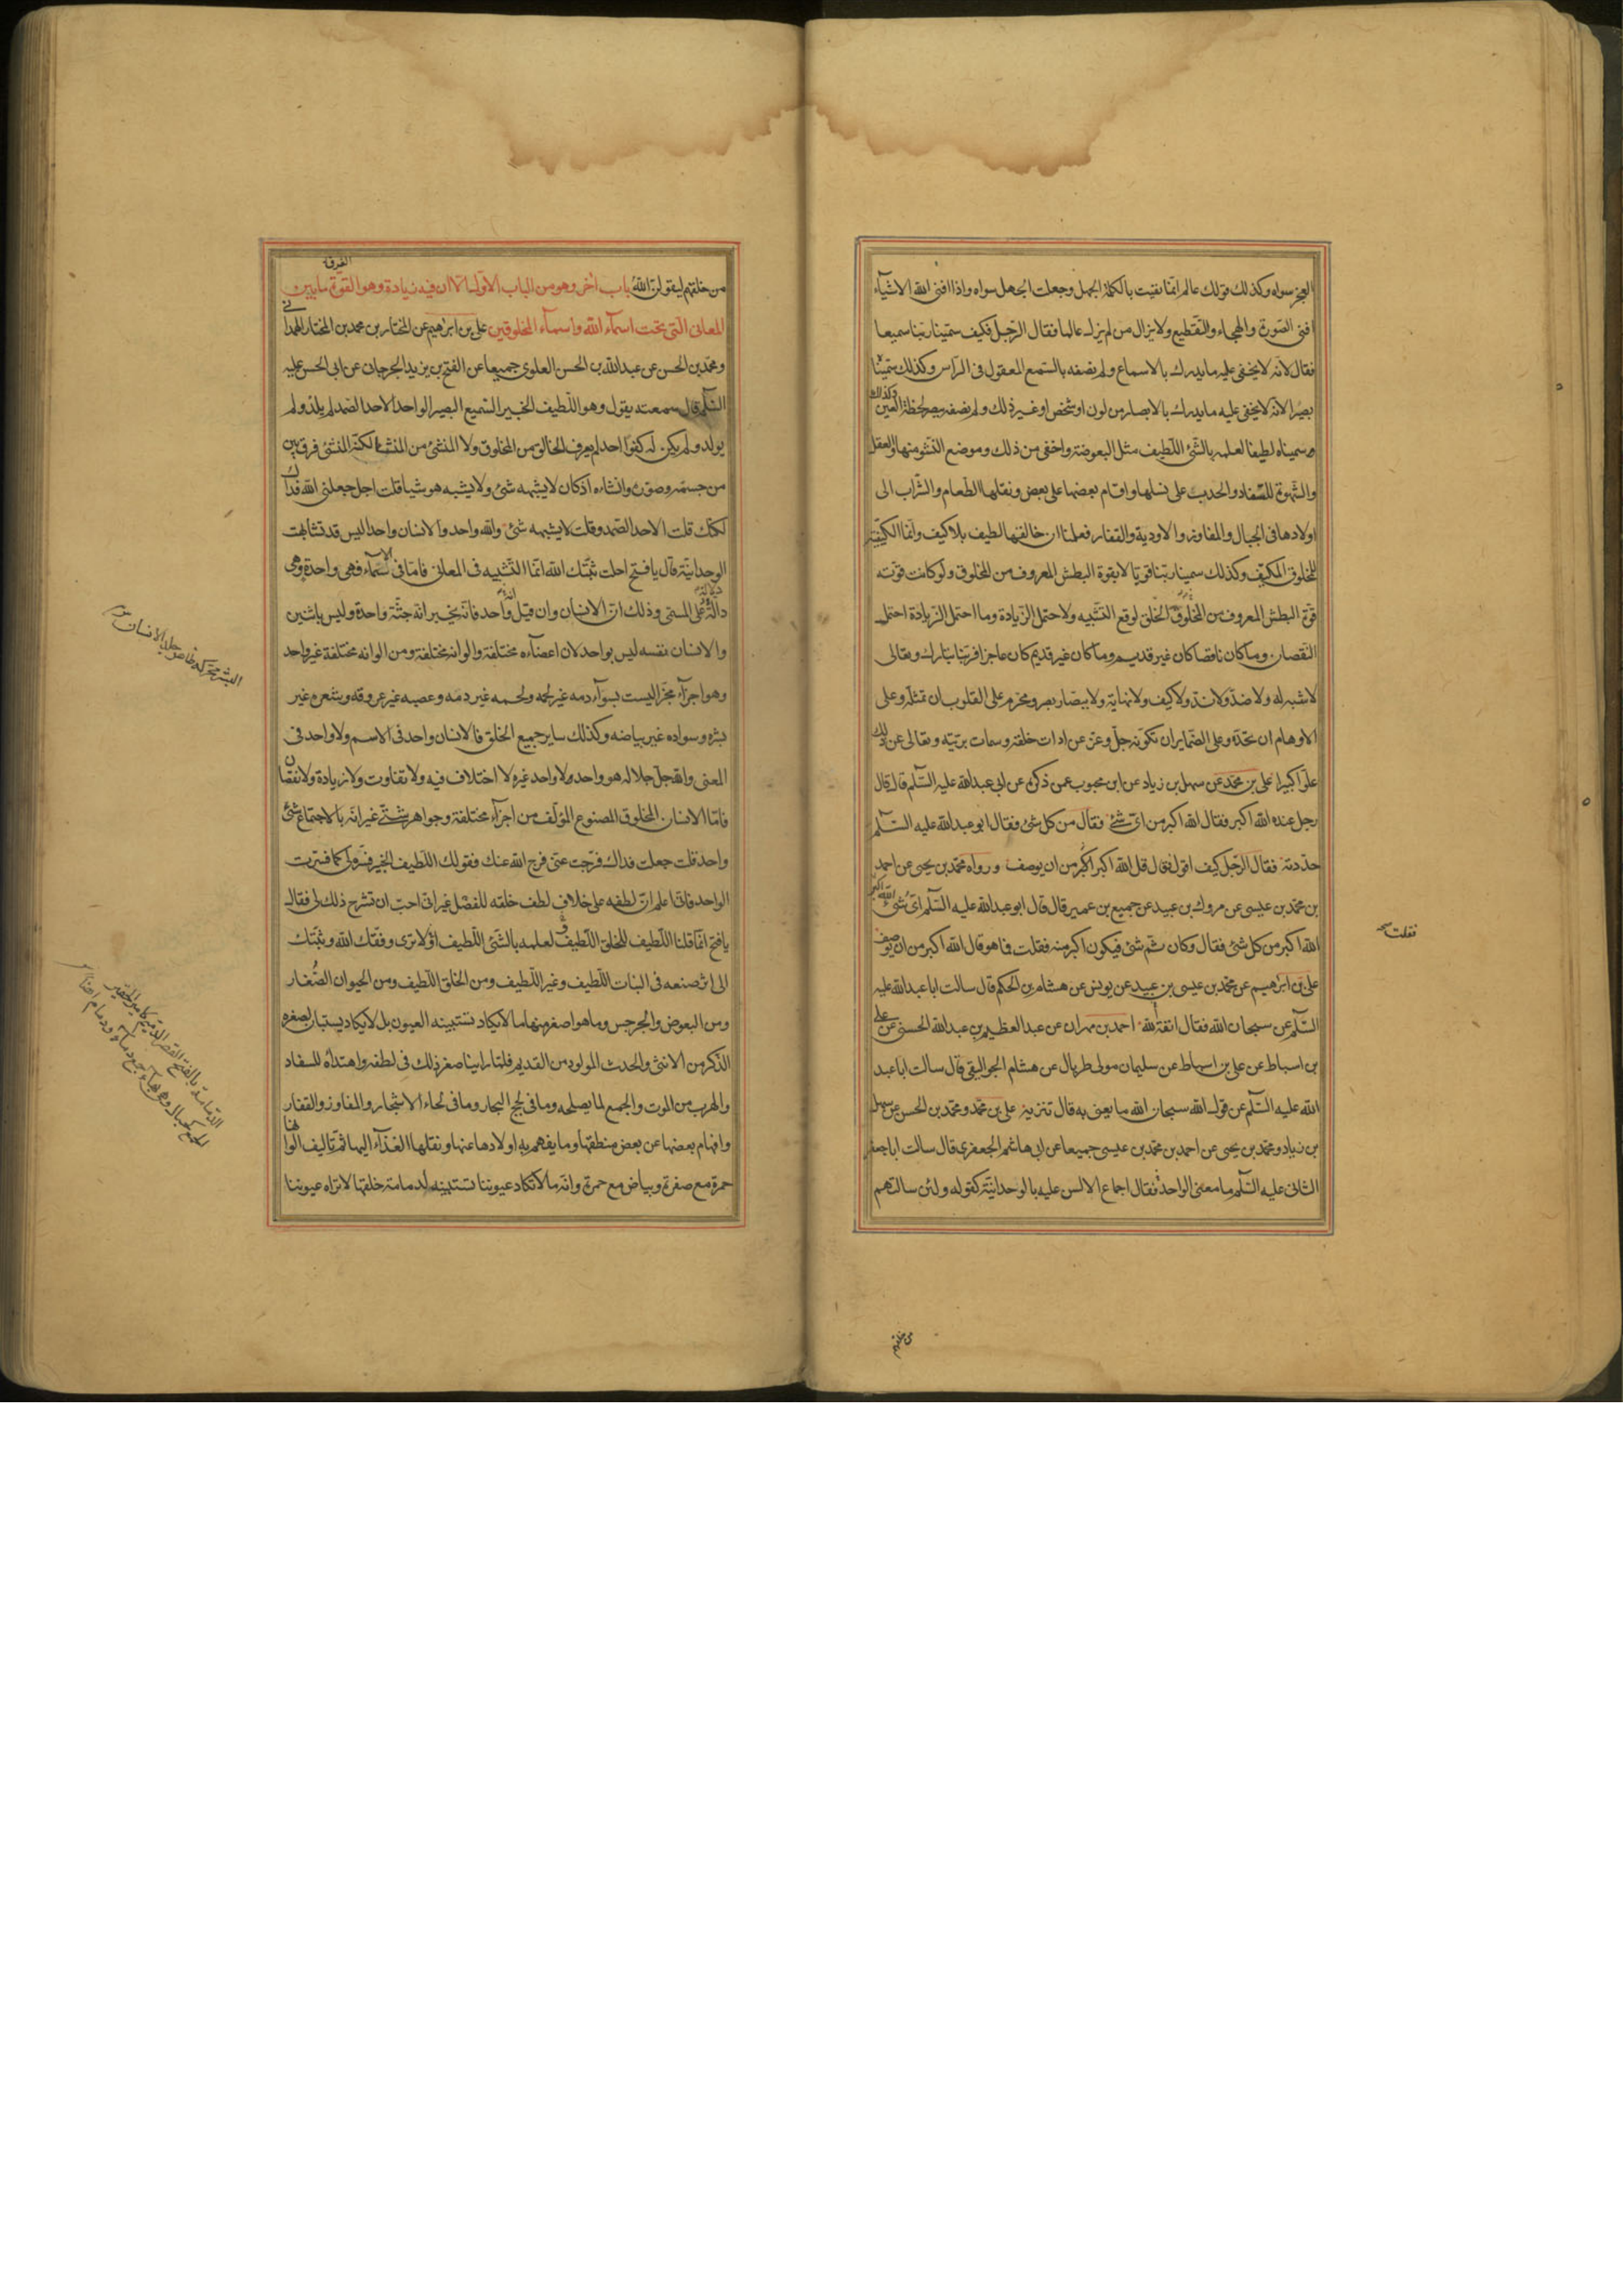 العجز سواه وكذلك قولك عالم انما نفيت بالكلمة الجهل وجعلت الجهل سواه واذا افنى الله الاشيآء
افنى الصورة والهجاء والتقطيع ولا يزال من لم يزل عالما فقال الرجل فكيف سمينا ربنا سميعا
فقال لانه لا يخفى عليه ما يدرك بالاسماع ولم نصفه بالسمع المعقول فى الراس وكذلك سميناه
بصيرا لانه لا يخفى عليه ما يدرك بالابصار من لون او شخص او غير ذلك ولم نصفه ببصر لحظة العين وكذلك
سميناه لطيفا لعلمه بالشئ اللطيف مثل البعوضة واخفى من ذلك وموضع النشو منها والعقل
والشهوة للسفاد والحدب على نسلها واقام بعضها على بعض ونقلها الطعام والشراب الى
اولادها فى الجبال والمفاوز والاودية والقفار فعلمنا ان خالقها لطيف بلا كيف وانما الكيفية
للمخلوق المكيف وكذلك سمينا ربنا قويا لا بقوة البطش المعروف من المخلوق ولو كانت قوته
قوة البطش المعروف من المخلوق لوقع التشبيه ولاحتمل الزيادة وما احتمل الزيادة احتمل
النقصان وما كان ناقصا كان غير قديم وما كان غير قديم كان عاجزا فربنا تبارك وتعالى
لا شبه له ولا ضد ولا ند ولا كيف ولا نهاية ولا ببصار بصر ومحرم على القلوب ان تمثله وعلى
الاوهام ان تحده وعلى الضماير ان تكونه جل وعز عن ادات خلقه وسمات بريته وتعالى عن ذلك
علوا كبيرا على بن محمد عن سهل بن زياد عن ابن محبوب عمن ذكره عن ابى عبدالله عليه السلم قال قال
رجل عنده الله اكبر فقال الله اكبر من اى شئ فقال من كل شئ فقال ابو عبدالله عليه السلم
حددته فقال الرجل كيف اقول فقال قل الله اكبر اكبر من ان يوصف ورواه محمد بن يحيى عن احمد
بن محمد بن عيسى عن مروك بن عبيد عن جميع بن عمير قال قال ابو عبدالله عليه السلم اى شئ الله اكبر
الله اكبر من كل شئ فقال وكان ثم شئ فيكون اكبر منه فقلت فما هو قال الله اكبر من ان يوصف
فقلت
على بن ابرهيم عن محمد بن عيسى بن عبيد عن يونس عن هشام بن الحكم قال سالت ابا عبدالله عليه
السلم عن سبحان الله فقال انفة لله احمد بن مهران عن عبد العظيم بن عبدالله الحسنى عن على
بن اسباط عن على بن اسباط عن سليمان مولى طربال عن هشام الجواليقى قال سالت ابا عبد
الله عليه السلم عن قول الله سبحان الله ما يعنى به قال تنزيه على بن محمد ومحمد بن الحسن عن سهل
بن زياد ومحمد بن يحيى عن احمد بن محمد بن عيسى جميعا عن ابى هاشم الجعفرى قال سالت ابا جعفر
الثانى عليه السلم ما معنى الواحد فقال اجماع الالسن عليه بالوحدانية كقوله ولئن سالتهم
من خلقهم
من خلقهم ليقولن الله باب آخر وهو من الباب الاول الا ان فيه زيادة وهو الفرق ما بين
المعانى التى تحت اسمآء الله واسمآء المخلوقين على بن ابراهيم عن المختار بن محمد بن المختار الهمدانى
ومحمد بن الحسن عن عبدالله بن الحسن العلوى جميعا عن الفتح بن يزيد الجرجانى عن ابى الحسن عليه
السلم قال سمعته يقول وهو اللطيف الخبير السميع البصير الواحد الاحد الصمد لم يلد ولم
يولد ولم يكن له كفوا احد لم يعرف الخالق من المخلوق ولا المنشئ من المنشا لكنه المنشئ فرق بين
من جسمه وصوره وانشاه اذ كان لا يشبهه شئ ولا يشبه هو شيا قلت اجل جعلنى الله فداك
لكنك قلت الاحد الصمد وقلت لا يشبهه شئ والله واحد والانسان واحد اليس قد تشابهت
الوحدانية قال يا فتح احلت ثبتك الله انما التشبيه فى المعانى فاما فى الاسمآء فهى واحدة وهى
دالة على المسمى وذلك ان الانسان وان قيل واحد فانه يخبر انه جثة واحدة وليس باثنين
والانسان نفسه ليس بواحد لان اعضآءه مختلفة والوانه مختلفة ومن الوانه مختلفة غير واحد
وهو اجزآء مجزا ليست بسوآء دمه غير لحمه ولحمه غير دمه وعصبه غير عروقه وشعره غير
بشره وسواده غير بياضه وكذلك ساير جميع الخلق فالانسان واحد فى الاسم ولا واحد فى
المعنى والله جل جلاله هو واحد ولا واحد غيره لا اختلاف فيه ولا تفاوت ولا زيادة ولا نقصان
فاما الانسان المخلوق المصنوع المؤلف من اجزآء مختلفة وجواهر شتى غير انه بالاجتماع شئ
واحد قلت جعلت فداك فرجت عنى فرج الله عنك فقولك اللطيف الخبير فسره لى كما فسرت
الواحد فانى اعلم ان لطفه على خلاف لطف خلقه للفصل غير انى احب ان تشرح ذلك لى فقال
يا فتح انما قلنا اللطيف للخلق اللطيف لعلمه بالشئ اللطيف اولا ترى وفقك الله وثبتك
الى اثر صنعه فى النبات اللطيف وغير اللطيف ومن الخلق اللطيف ومن الحيوان الصغار
ومن البعوض والجرجس وما هو اصغر منها ما لا يكاد تستبينه العيون بل لا يكاد يستبان لصغره
الذكر من الانثى والحدث المولود من القديم فلما راينا صغر ذلك فى لطفه واهتدآه للسفاد
والهرب من الموت والجمع لما يصلحه وما فى لجج البحار وما فى لحاء الاشجار والمفاوز والقفار
وافهام بعضها عن بعض منطقها وما يفهم به اولادها عنها ونقلها الغذآء اليها ثم تاليف الوانها
حمرة مع صفرة وبياض مع حمرة وانه ما لا تكاد عيوننا تستبينه لدمامة خلقها لا تراه عيوننا